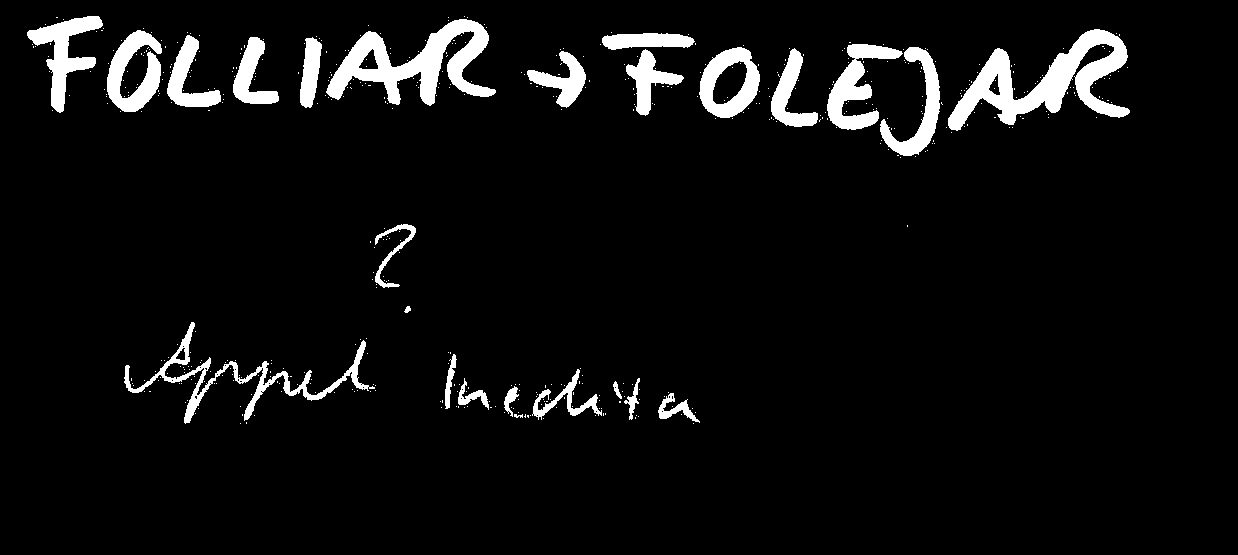 FOLLIAR → FOLEJAR
?
Appel Inedita